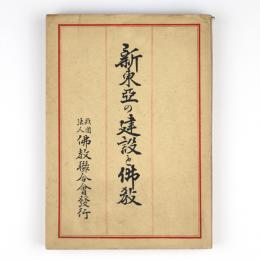 新東亞の建設と佛教
財團
法人
佛教聯合會發行